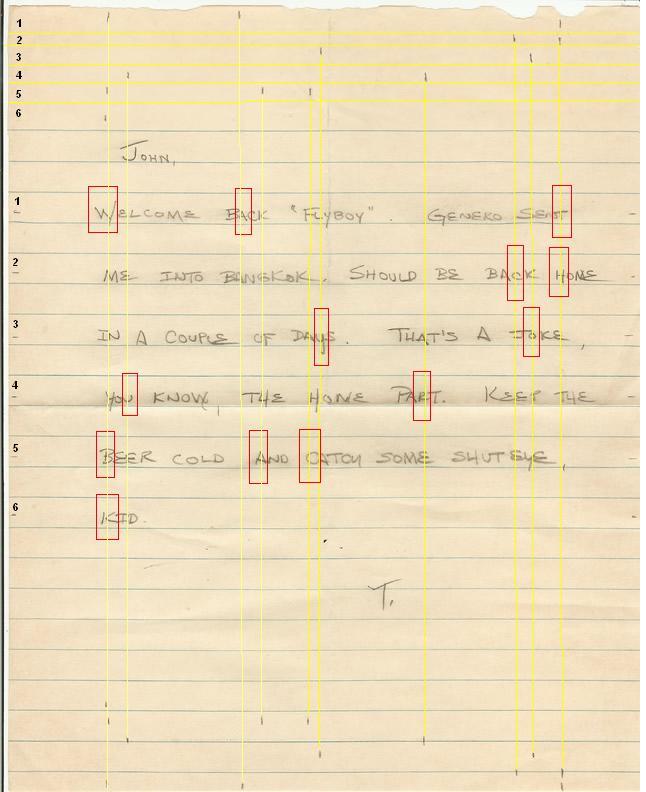 1
2
3
4
5
6
JOHN,
1 WELCOME BACK "FLYBOY". GENERO SENT
2 ME INTO BANGKOK. SHOULD BE BACK HOME
3 IN A COUPLE OF DAYS. THAT'S A JOKE,
4 YOU KNOW, THE HOME PART. KEEP THE
5 BEER COLD AND CATCH SOME SHUTEYE,
6 KID.
T.